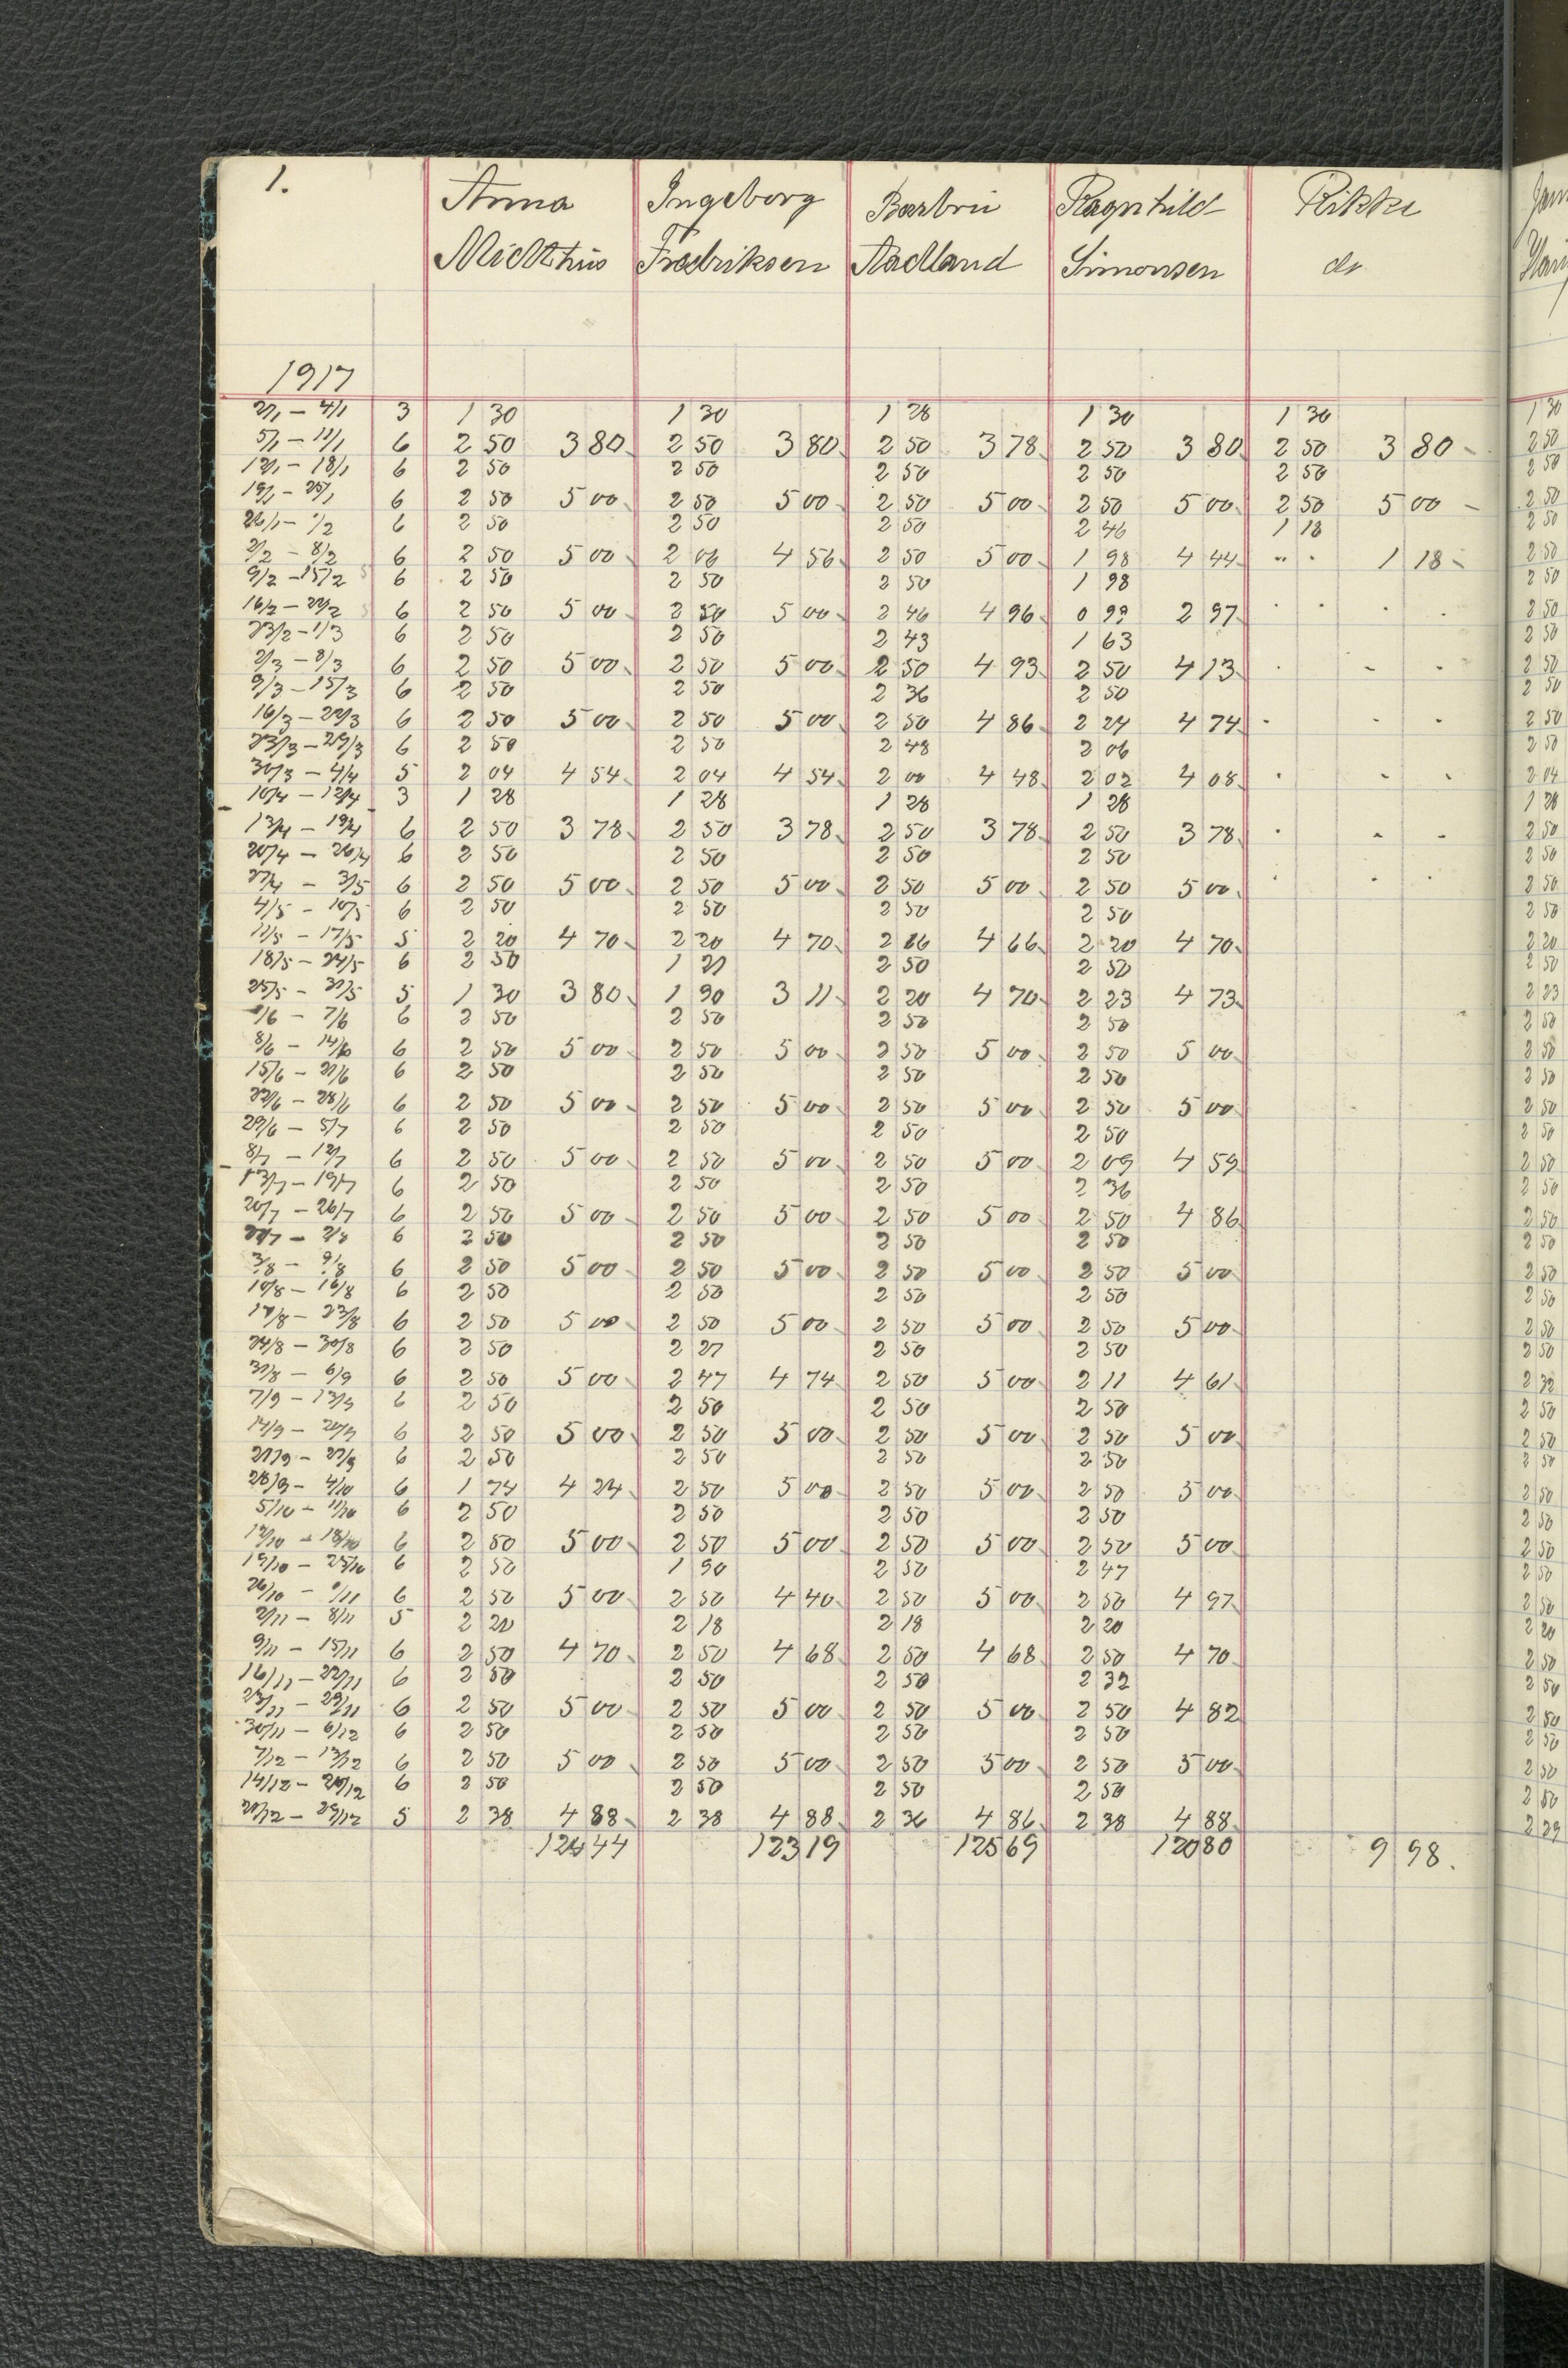 1. Anna Ingeborg Barbru Ragnhild Rikke
Midthus Fredriksen Aadland Simonsen do
1917
2/1 – 4/1 3 1 30 1 30 1 28 1 30 1 30 1 30
5/1 – 11/1 6 2 50 3 80 2 50 3 80 2 50 3 78 2 50 3 80 2 50 3 80 2 50
12/1 – 18/1 6 2 50 2 50 2 50 2 50 2 50 2 50
19/1 – 25/1 6 2 50 5 00 2 50 5 00 2 50 5 00 2 50 5 00 2 50 5 00 2 50
26/1 – 1/2 6 2 50 2 50 2 50 2 46 1 18 2 50
2/2 – 8/2 6 2 50 5 00 2 06 4 56 2 50 5 00 1 98 4 44 1 18 2 50
9/2 – 15/2 6 2 50 2 50 2 50 1 98 2 50
16/2 – 22/2 6 2 50 5 00 2 50 5 00 2 46 4 96 0 99 2 97 2 50
23/2 – 1/3 6 2 50 2 50 2 43 1 63 2 50
2/3 – 8/3 6 2 50 5 00 2 50 5 00 2 50 4 93 2 50 4 13 2 50
9/3 – 15/3 6 2 50 2 50 2 36 2 50 2 50
16/3 – 22/3 6 2 50 5 00 2 50 5 00 2 50 4 86 2 24 4 74 2 50
23/3 – 29/3 6 2 50 2 50 2 48 2 06 2 50
30/3 – 4/4 5 2 04 4 54 2 04 4 54 2 00 4 48 2 02 4 08 2 04
10/4 – 12/4 3 1 28 1 28 1 28 1 28 1 28
13/4 – 19/4 6 2 50 3 78 2 50 3 78 2 50 3 78 2 50 3 78 2 50
20/4 – 26/4 6 2 50 2 50 2 50 2 50 2 50
27/4 – 3/5 6 2 50 5 00 2 50 5 00 2 50 5 00 2 50 5 00 2 50
4/5 – 10/5 6 2 50 2 50 2 50 2 50 2 50
11/5 – 17/5 5 2 20 4 70 2 20 4 70 2 16 4 66 2 20 4 70 2 20
18/5 – 24/5 6 2 50 1 21 2 50 2 50 2 50
25/5 – 31/5 5 1 30 3 80 1 90 3 11 2 20 4 70 2 23 4 73 2 23
1/6 – 7/6 6 2 50 2 50 2 50 2 50 2 50
8/6 – 14/6 6 2 50 5 00 2 50 5 00 2 50 5 00 2 50 5 00 2 50
15/6 – 21/6 6 2 50 2 50 2 50 2 50 2 50
22/6 – 28/6 6 2 50 5 00 2 50 5 00 2 50 5 00 2 50 5 00 2 50
29/6 – 5/7 6 2 50 2 50 2 50 2 50 2 50
8/7 – 12/7 6 2 50 5 00 2 50 5 00 2 50 5 00 2 09 4 59 2 50
13/7 – 19/7 6 2 50 2 50 2 50 2 36 2 50
20/7 – 26/7 6 2 50 5 00 2 50 5 00 2 50 5 00 2 50 4 86 2 50
27/7 – 2/8 6 2 50 2 50 2 50 2 50 2 50
3/8 – 9/8 6 2 50 5 00 2 50 5 00 2 50 5 00 2 50 5 00 2 50
10/8 – 16/8 6 2 50 2 50 2 50 2 50 2 50
17/8 – 23/8 6 2 50 5 00 2 50 5 00 2 50 5 00 2 50 5 00 2 50
24/8 – 30/8 6 2 50 2 27 2 50 2 50 2 50
31/8 – 6/9 6 2 50 5 00 2 47 4 74 2 50 5 00 2 11 4 61 2 32
7/9 – 13/9 6 2 50 2 50 2 50 2 50 2 50
14/9 – 20/9 6 2 50 5 00 2 50 5 00 2 50 5 00 2 50 5 00 2 50
21/9 – 27/9 6 2 50 2 50 2 50 2 50 2 50
28/9 – 4/10 6 1 74 4 24 2 50 5 00 2 50 5 00 2 50 5 00 2 50
5/10 – 11/10 6 2 50 2 50 2 50 2 50 2 50
12/10 – 18/10 6 2 50 5 00 2 50 5 00 2 50 5 00 2 50 5 00 2 50
19/10 – 25/10 6 2 50 1 90 2 50 2 47 2 50
26/10 – 1/11 6 2 50 5 00 2 50 4 40 2 50 5 00 2 50 4 97 2 50
2/11 – 8/11 5 2 20 2 18 2 18 2 20 2 20
9/11 – 15/11 6 2 50 4 70 2 50 4 68 2 50 4 68 2 50 4 70 2 50
16/11 – 22/11 6 2 50 2 50 2 50 2 32 2 50
23/11 – 29/11 6 2 50 5 00 2 50 5 00 2 50 5 00 2 50 4 82 2 50
30/11 – 6/12 6 2 50 2 50 2 50 2 50 2 50
7/12 – 13/12 6 2 50 5 00 2 50 5 00 2 50 5 00 2 50 5 00 2 50
14/12 – 20/12 6 2 50 2 50 2 50 2 50 2 50
21/12 – 29/12 5 2 38 4 88 2 38 4 88 2 36 4 86 2 38 4 88 2 29
124 44 123 19 125 69 120 80 9 98.